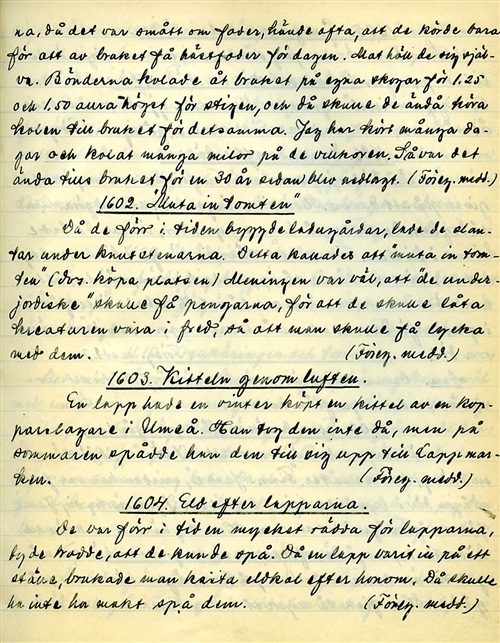 na, då det var smått om foder, hände ofta, att de körde bara
för att av bruket få hästfoder för dagen. Mat höll de sig själ-
va. Bönderna kolade åt bruket på egna skogar för 1.25
och 1.50 aura "höget för stigen, och då skulle de ändå köra
kolen till bruket för detsamma. Jag har kört många da-
gar och kolat många milor på de villkoren. Så var det
ända tills bruket för en 30 år sedan blev nedlagt. (Föreg. medd.)
1602. "Muta in tomten"
Då de förr i tiden byggde ladugårdar, lade de slan-
tar under knutstenarna. Detta kallades att "muta in tom-
ten" (dvs. köpa platsen) Meningen var väl, att "de under-
jordiske" skulle få pengarna, för att de skulle låta
kreaturen vara i fred, så att man skulle få lycka
med dem. (Föreg. medd.)
1603. Kitteln genom luften.
En lapp hade en vinter köpt en kittel av en kop-
parslagare i Umeå. Han tog den inte då, men på
sommaren spådde han den till sig upp till Lappmar-
ken. (Föreg. medd.)
1604. Eld efter lapparna.
De var förr i tiden mycket rädda för lapparna,
ty de trodde, att de kunde spå. Då en lapp varit in på ett
ställe, brukade man kasta eldkol efter honom. Då skulle
ha inte ha makt spå dem. (Föreg. medd.)